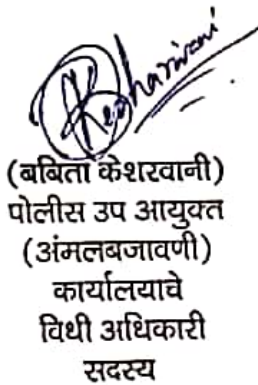 Kesharwani
(बबिता केशरवानी)
पोलीस उप आयुक्त
(अंमलबजावणी)
कार्यालयाचे
विधी अधिकारी
सदस्य